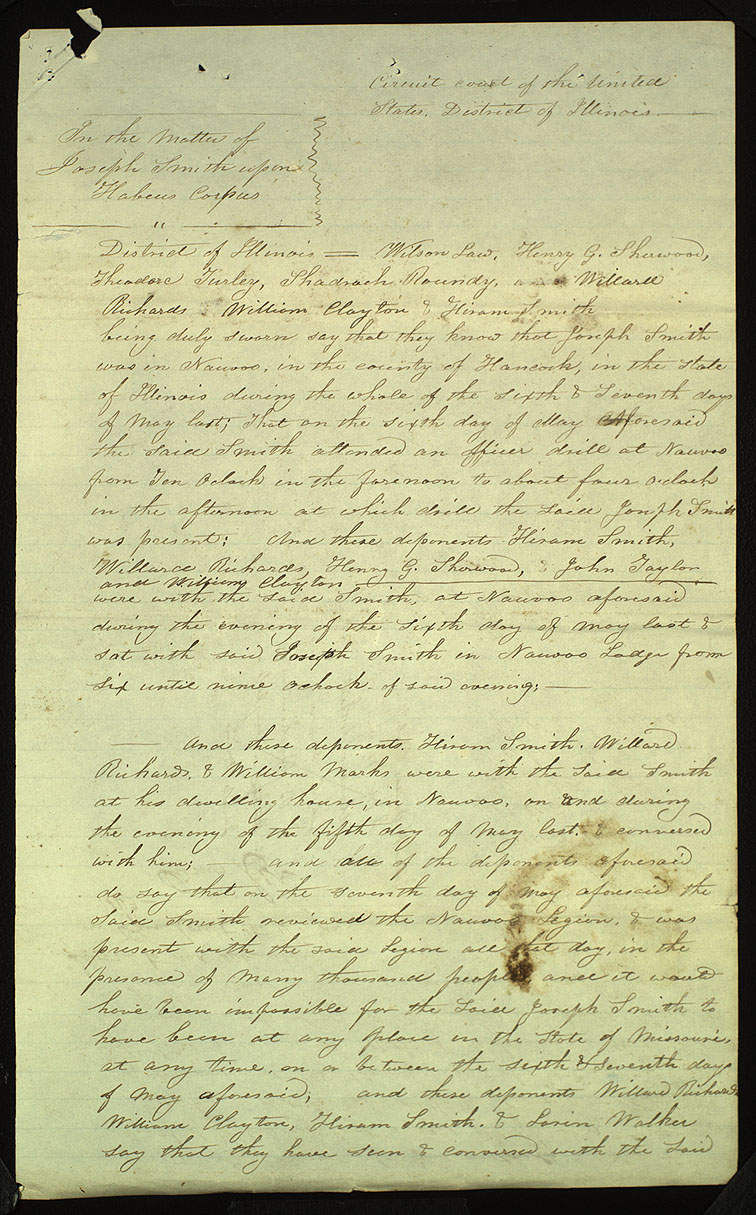 Circuit court of the United
States. District of Illinois
In the Matter of
Joseph Smith upon
Habeus Corpus
"
District of Illinois = Wilson Law, Henry G. Sherwood,
Theodore Turley, Shadrach Roundy, Willard
Richards William Clayton & Hiram Smith
being duly sworn say that they know that Joseph Smith
was in Nauvoo, in the county of Hancock, in the State
of Illinois during the whole of the sixth & Seventh days
of May last; that on the sixth day of May aforesaid
the said Smith attended an officer drill at Nauvoo
from Ten Oclock in the forenoon to about four oclock
in the afternoon at which drill the said Joseph Smith
was present; And these deponents Hiram Smith,
Willard Richards, Henry G. Sherwood, & John Taylor
and William Clayton
were with the said Smith, at Nauvoo aforesaid
during the evening of the sixth day of may last &
sat with said Joseph Smith in Nauvoo Lodge from
six until nine oclock of said evening;
And these deponents Hiram Smith. Willard
Richards. & William Marks were with the said Smith
at his dwelling house, in Nauvoo, on and during
the evening of the fifth day of May last. & conversed
with him; and all of the deponents aforesaid
do say that on the seventh day of May aforesaid the
said Smith reviewed the Nauvoo Legion, & was
present with the said Legion all that day, in the
presence of many thousand people and it would
have been impossible for the said Joseph Smith to
have been at any place in the State of Missouri,
at any time, on or between the sixth & Seventh days
of May aforesaid; and these deponents Willard Richards
William Clayton, Hiram Smith. & Lorin Walker
say that they have seen & conversed with the said